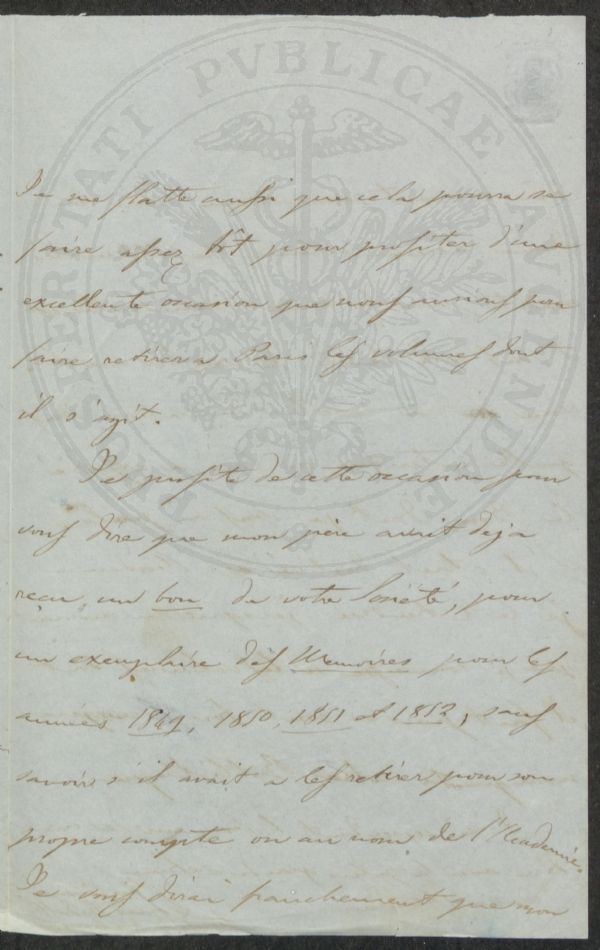 Je me flatte aussi que cela pourra se
faire assez tôt pour profiter d'une
excellente occasion que nous aurions pour
faire retirer a Paris les volumes dont
il s'agit.
Je profite de cette occasion pour
vous dire que mon père avait deja
reçu un bon de votre Société, pour
un exemplaire des Memoires pour les
années 1849, 1850, 1851 et 1852, sans
savoir s'il avait a les retirer pour son
propre compte ou au nom de l'Academie.
Je vous dirai franchement que mon
PUBLICAE